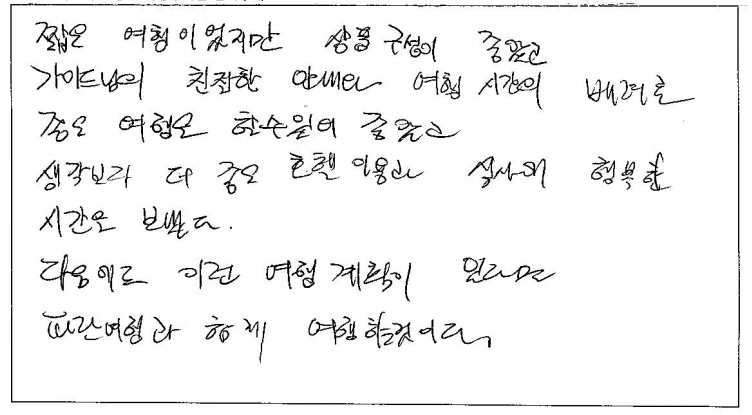 짧은 여행이었지만 상품 구성이 좋았고
가이드님의 친절한 안내와 여행 시간의 배려로
좋은 여행을 할수있어 좋았고
생각보다 더 좋은 호텔 이용과 식사에 행복한
시간을 보냈다.
다음에도 이런 여행 계획이 있다면
파란여행과 함께 여행할것이다.